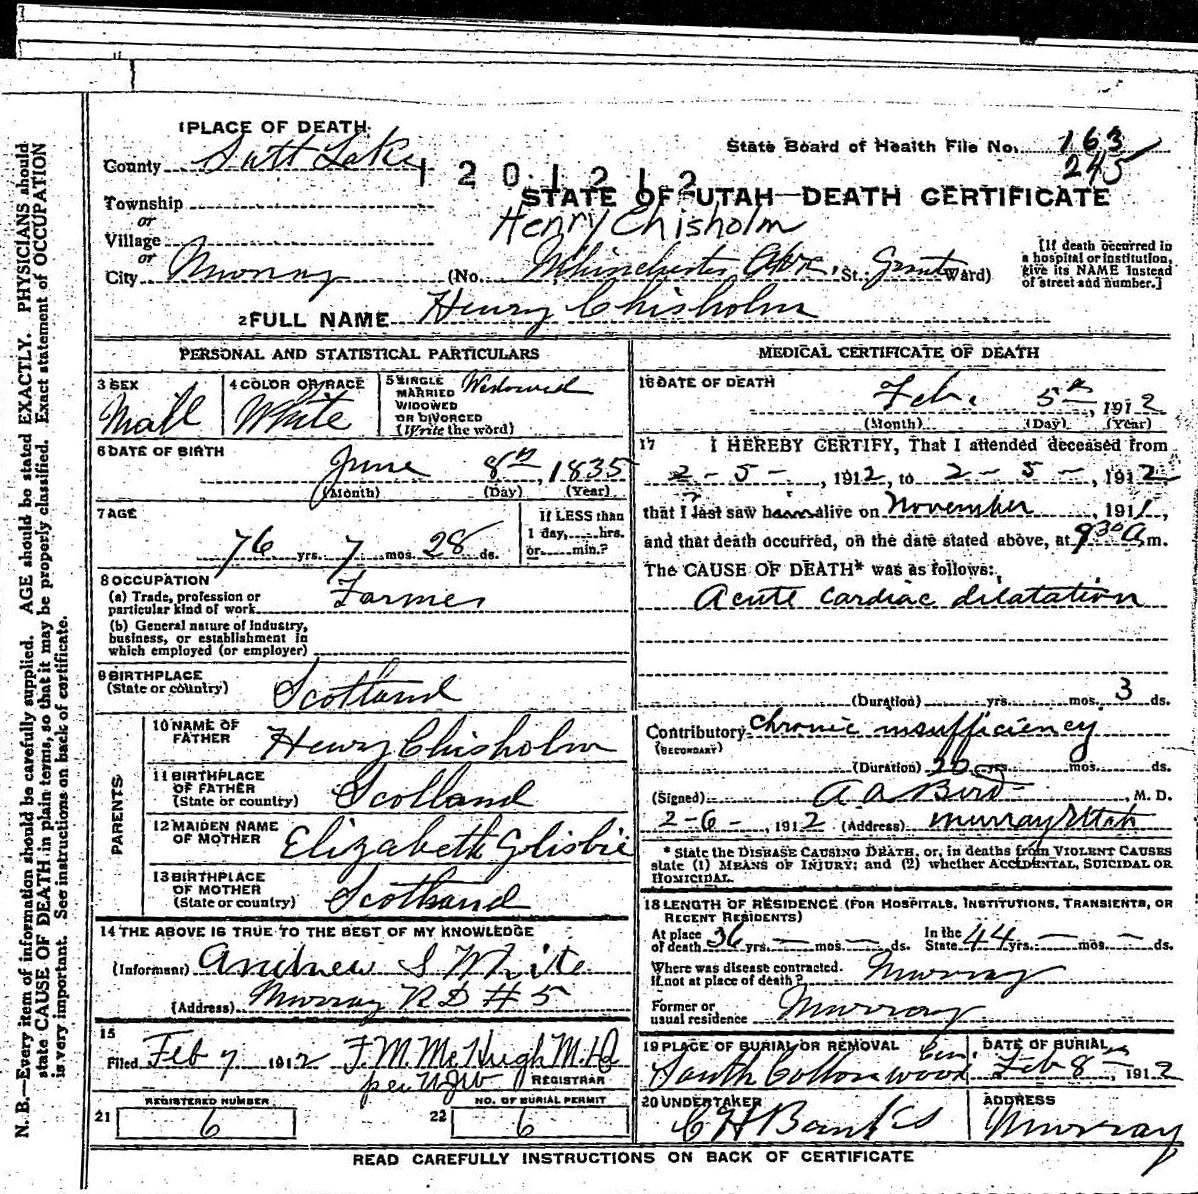 1 PLACE OF DEATH
County Salt Lake
State Board of Health File No. 163
245
1201212
Township
STATE OF UTAH—DEATH CERTIFICATE
or
Henry Chisholm
Village
or
City Murray (No. Winchester Ave. St.; Grant Ward)
[If death occurred in
a hospital or institution,
give its NAME instead
of street and number.]
2 FULL NAME Henry Chisholm
PERSONAL AND STATISTICAL PARTICULARS
3 SEX
Mall
4 COLOR OR RACE
White
5 SINGLE
MARRIED
WIDOWED
OR DIVORCED
(Write the word)
Widowed
6 DATE OF BIRTH
June 8th, 1835
(Month) (Day) (Year)
7 AGE
76 yrs. 7 mos. 28 ds.
If LESS than
1 day, hrs.
or min.?
8 OCCUPATION
(a) Trade, profession or
particular kind of work Farmer
(b) General nature of industry,
business, or establishment in
which employed (or employer)
9 BIRTHPLACE
(State or country) Scotland
PARENTS
10 NAME OF
FATHER Henry Chisholm
11 BIRTHPLACE
OF FATHER
(State or country) Scotland
12 MAIDEN NAME
OF MOTHER Elizabeth
13 BIRTHPLACE
OF MOTHER
(State or country) Scotland
14 THE ABOVE IS TRUE TO THE BEST OF MY KNOWLEDGE
(Informant) Andrew S White
(Address) Murray RD #5
15
Filed Feb 7 1912 F. M. McHugh M.D
per
REGISTRAR
21 REGISTERED NUMBER
6
22 NO. OF BURIAL PERMIT
6
MEDICAL CERTIFICATE OF DEATH
16 DATE OF DEATH
Feb. 5th, 1912
(Month) (Day) (Year)
17 I HEREBY CERTIFY, That I attended deceased from
2-5-, 1912, to 2-5-, 1912
that I last saw him alive on November, 1911,
and that death occurred, on the date stated above, at 9 30 A m.
The CAUSE OF DEATH* was as follows:
Acute cardiac dilatation
(Duration) yrs. mos. 3 ds.
Contributory Chronic insufficiency
(SECONDARY)
(Duration) 20 yrs. mos. ds.
(Signed) A A Bird, M. D.
2-6-, 1912 (Address) Murray Utah
* State the DISEASE CAUSING DEATH, or, in deaths from VIOLENT CAUSES
state (1) MEANS OF INJURY; and (2) whether ACCIDENTAL, SUICIDAL OR
HOMICIDAL.
18 LENGTH OF RESIDENCE (FOR HOSPITALS, INSTITUTIONS, TRANSIENTS, OR
RECENT RESIDENTS)
At place
of death 36 yrs. — mos. — ds.
In the
State 44 yrs. — mos. — ds.
Where was disease contracted.
if not at place of death? Murray
Former or
usual residence Murray
19 PLACE OF BURIAL OR REMOVAL
South Cottonwood Cem.
DATE OF BURIAL
Feb 8th, 1912
20 UNDERTAKER
C H Banks
ADDRESS
Murray
READ CAREFULLY INSTRUCTIONS ON BACK OF CERTIFICATE
N. B.—Every item of information should be carefully supplied. AGE should be stated EXACTLY. PHYSICIANS should
state CAUSE OF DEATH in plain terms, so that it may be properly classified. Exact statement of OCCUPATION
is very important. See instructions on back of certificate.